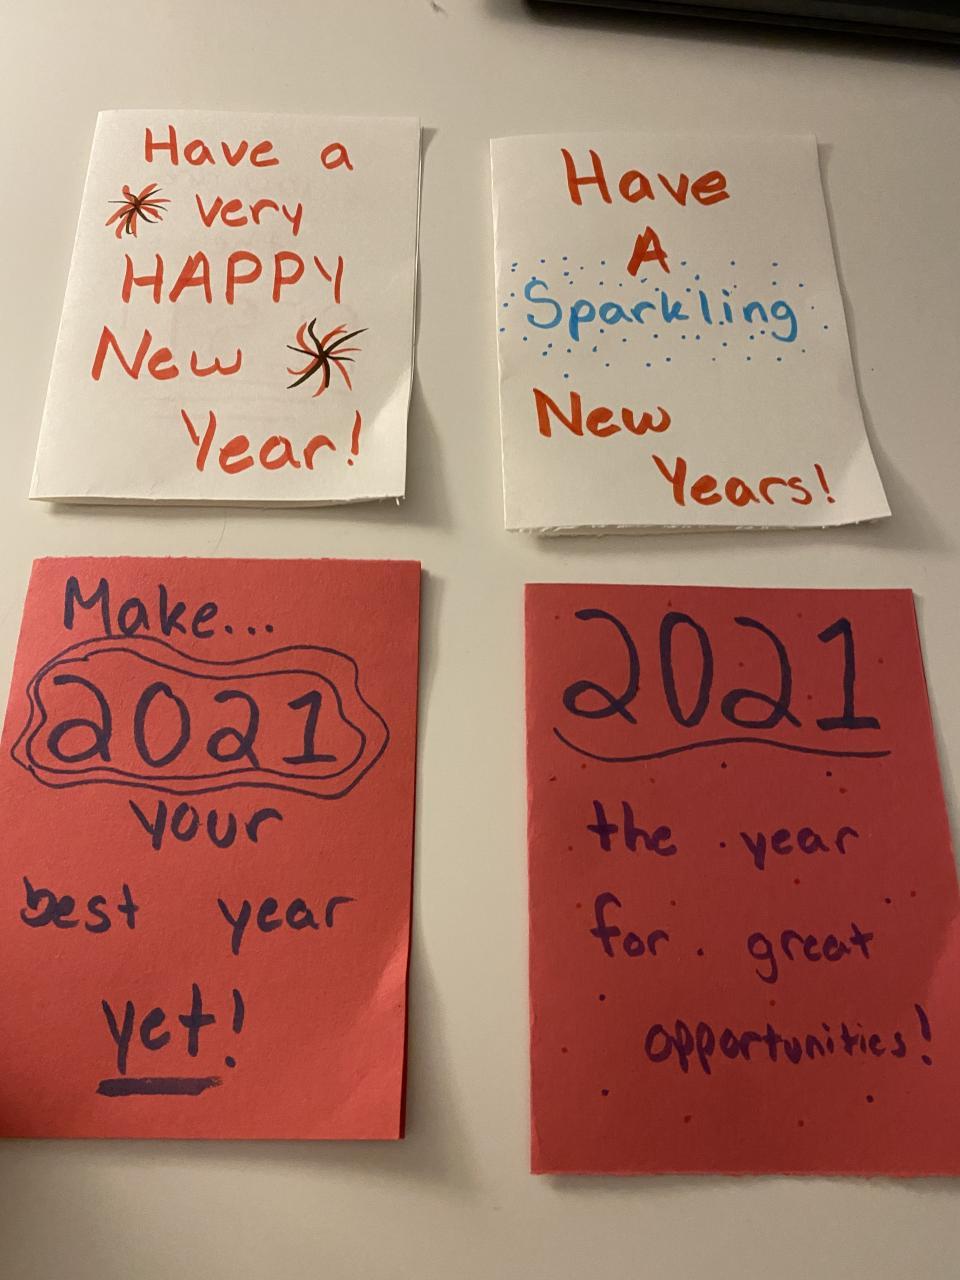 Have a
very
HAPPY
New
Year!
Have
A
Sparkling
New
Years!
Make...
2021
your
best year
yet!
2021
the year
for great
opportunities!